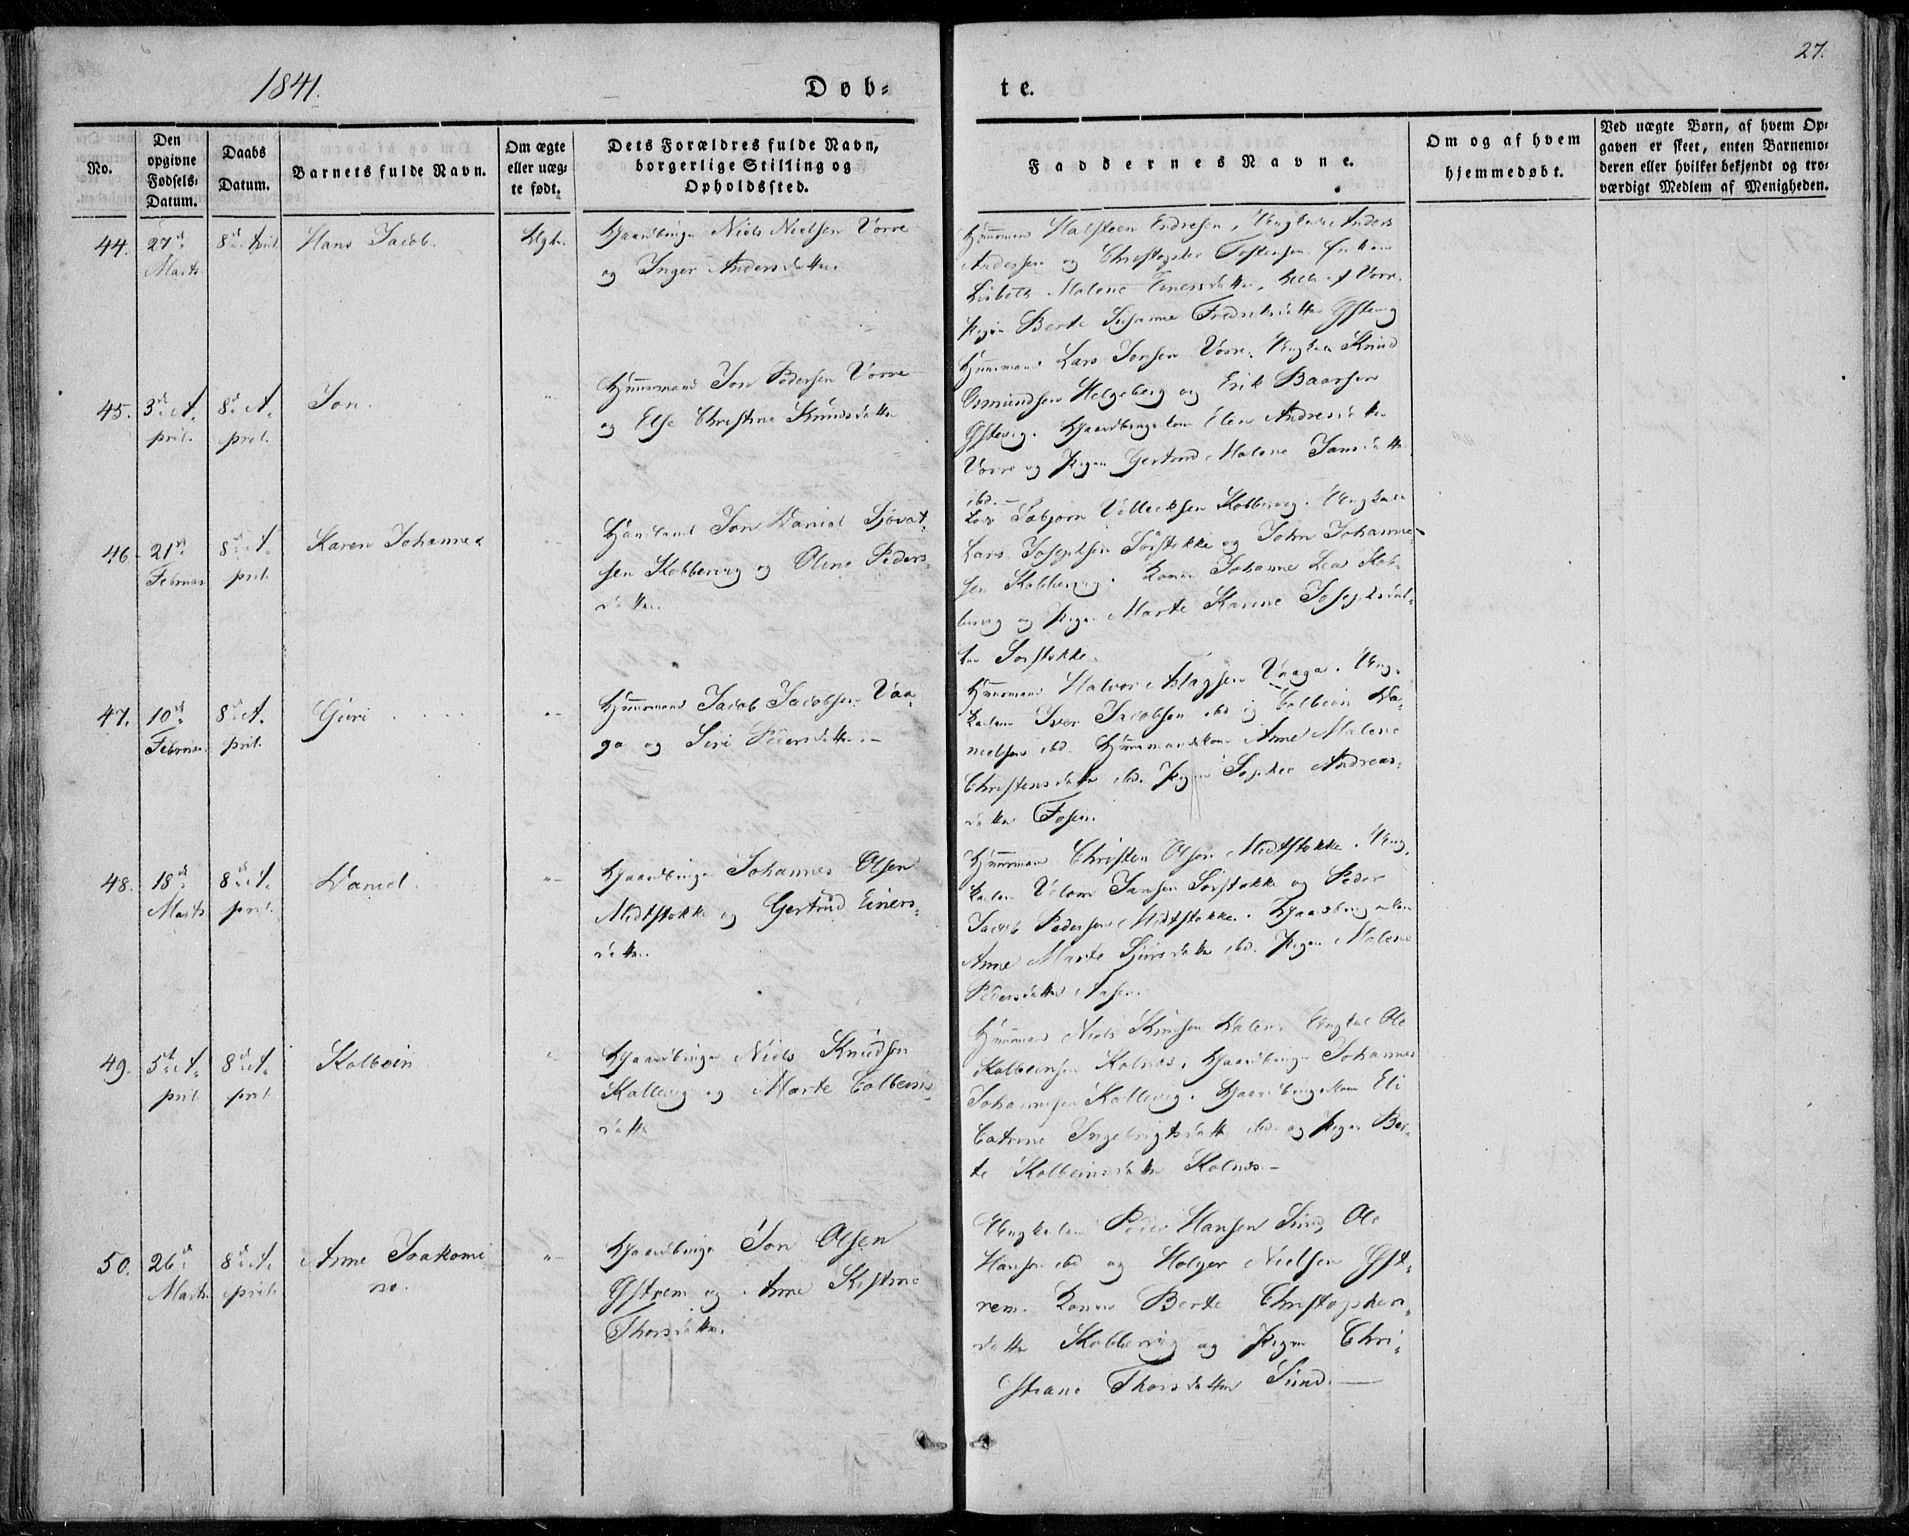 1841.
Døb-
te.
27.
No.
Den
opgivne
Fødsels-
Datum.
Daabs
Datum.
Barnets fulde Navn.
Om ægte
eller uæg-
te født.
Dets Forældres fulde Navn,
borgerlige Stilling og
Opholdssted.
Faddernes Navne.
Om og af hvem
hjemmedøbt.
Ved uægte Børn, af hvem Op-
gaven er skeet, enten Barnemo-
deren eller hvilket bekjendt og tro-
værdigt Medlem af Menigheden.
44. 27de 8de April Hans Jacob. Ægte
Marts
Niels Nielsen Vorre
og Inger Andersdatter
Huusmand Halsteen Endresen, Ungkarl Anders
Andersen og Christopher Tostensen
Lisbeth Malene Einersdatter, Vorre.
Pigen Berte Susanne Fredriksdatter
45. 3de A- 8de A- Jon.
pril. pril.
Huusmand Jon Pedersen Vorre
og Else Christine Knudsdatter
Huusmand Lars Jonsen Vorre. Ungkarl Knud
Osmundsen Helgeberg og Erik Baarsen
Elen Andreasdatter
Vorre og Pigen Gertrud Malene Jansdatter
ibd.
46. 21de 8de A- Karen Johanne
Februar pril.
Jon Daniel Sjovat-
sen Kobbervig og Oline Peders-
datter.
Kobbervig. Ungkarl
Lars Josephsen Sørstokke og John Johanne-
sen Kobbervig. Konen Johanne Kob-
bervig og Pigen Marte Karine Josephsdat-
ter Sørstokke.
47. 10de 8de A- Guri
Februar pril.
Huusmand Jacob Jacobsen Vaa-
ga og Siri Pedersdatter.
Huusmand Halvor Aslagsen Vaaga. Ung-
karlene Iver Jacobsen ibd og Colbein Da-
nielsen ibd. Huusmandskone Anne Malene
Christensdatter ibd. Pigen Sophie Andreas-
datter Fosen.
48. 18de 8de A- Daniel
Marts pril.
Gaardbruger Johannes Olsen
Midtstokke og Gertrud Einers-
datter.
Huusmand Christen Olsen Midtstokke. Ung-
karlene Jansen Sørstokke og Peder
Jacob Pedersen Midtstokke.
Anne Marte Sjursdatter ibd. Pigen Malene
Pedersdatter
49. 5te A- 8de A- Kolbein
pril pril.
Gaardbruger Niels Knudsen
Kallevig og Marte Colbeins-
datter
Huusmand Niels Knudsen Ungkarl Ole
Kolbeinsen Kolnæs, Gaardbruger Johannes
Johannesen Kallevig. Gaardbrugerkone Eli
Catrine Ingebrigtsdatter ibd. og Pigen Ber-
te Kolbeinsdatter Kolnæs.
50. 26de 8de A- Anne Joakomi
Marts. pril. ne.
Gaardbruger Jon Olsen
Østrem og Anne Kistine
Thorsdatter.
Ungkarlene Peder Hansen Sund, Ole
Hansen ibd og Holger Nielsen Øst-
rem. Konen Berte Christophers-
datter Kobbervig og Pigen Chri-
stiane Thorsdatter Sund.